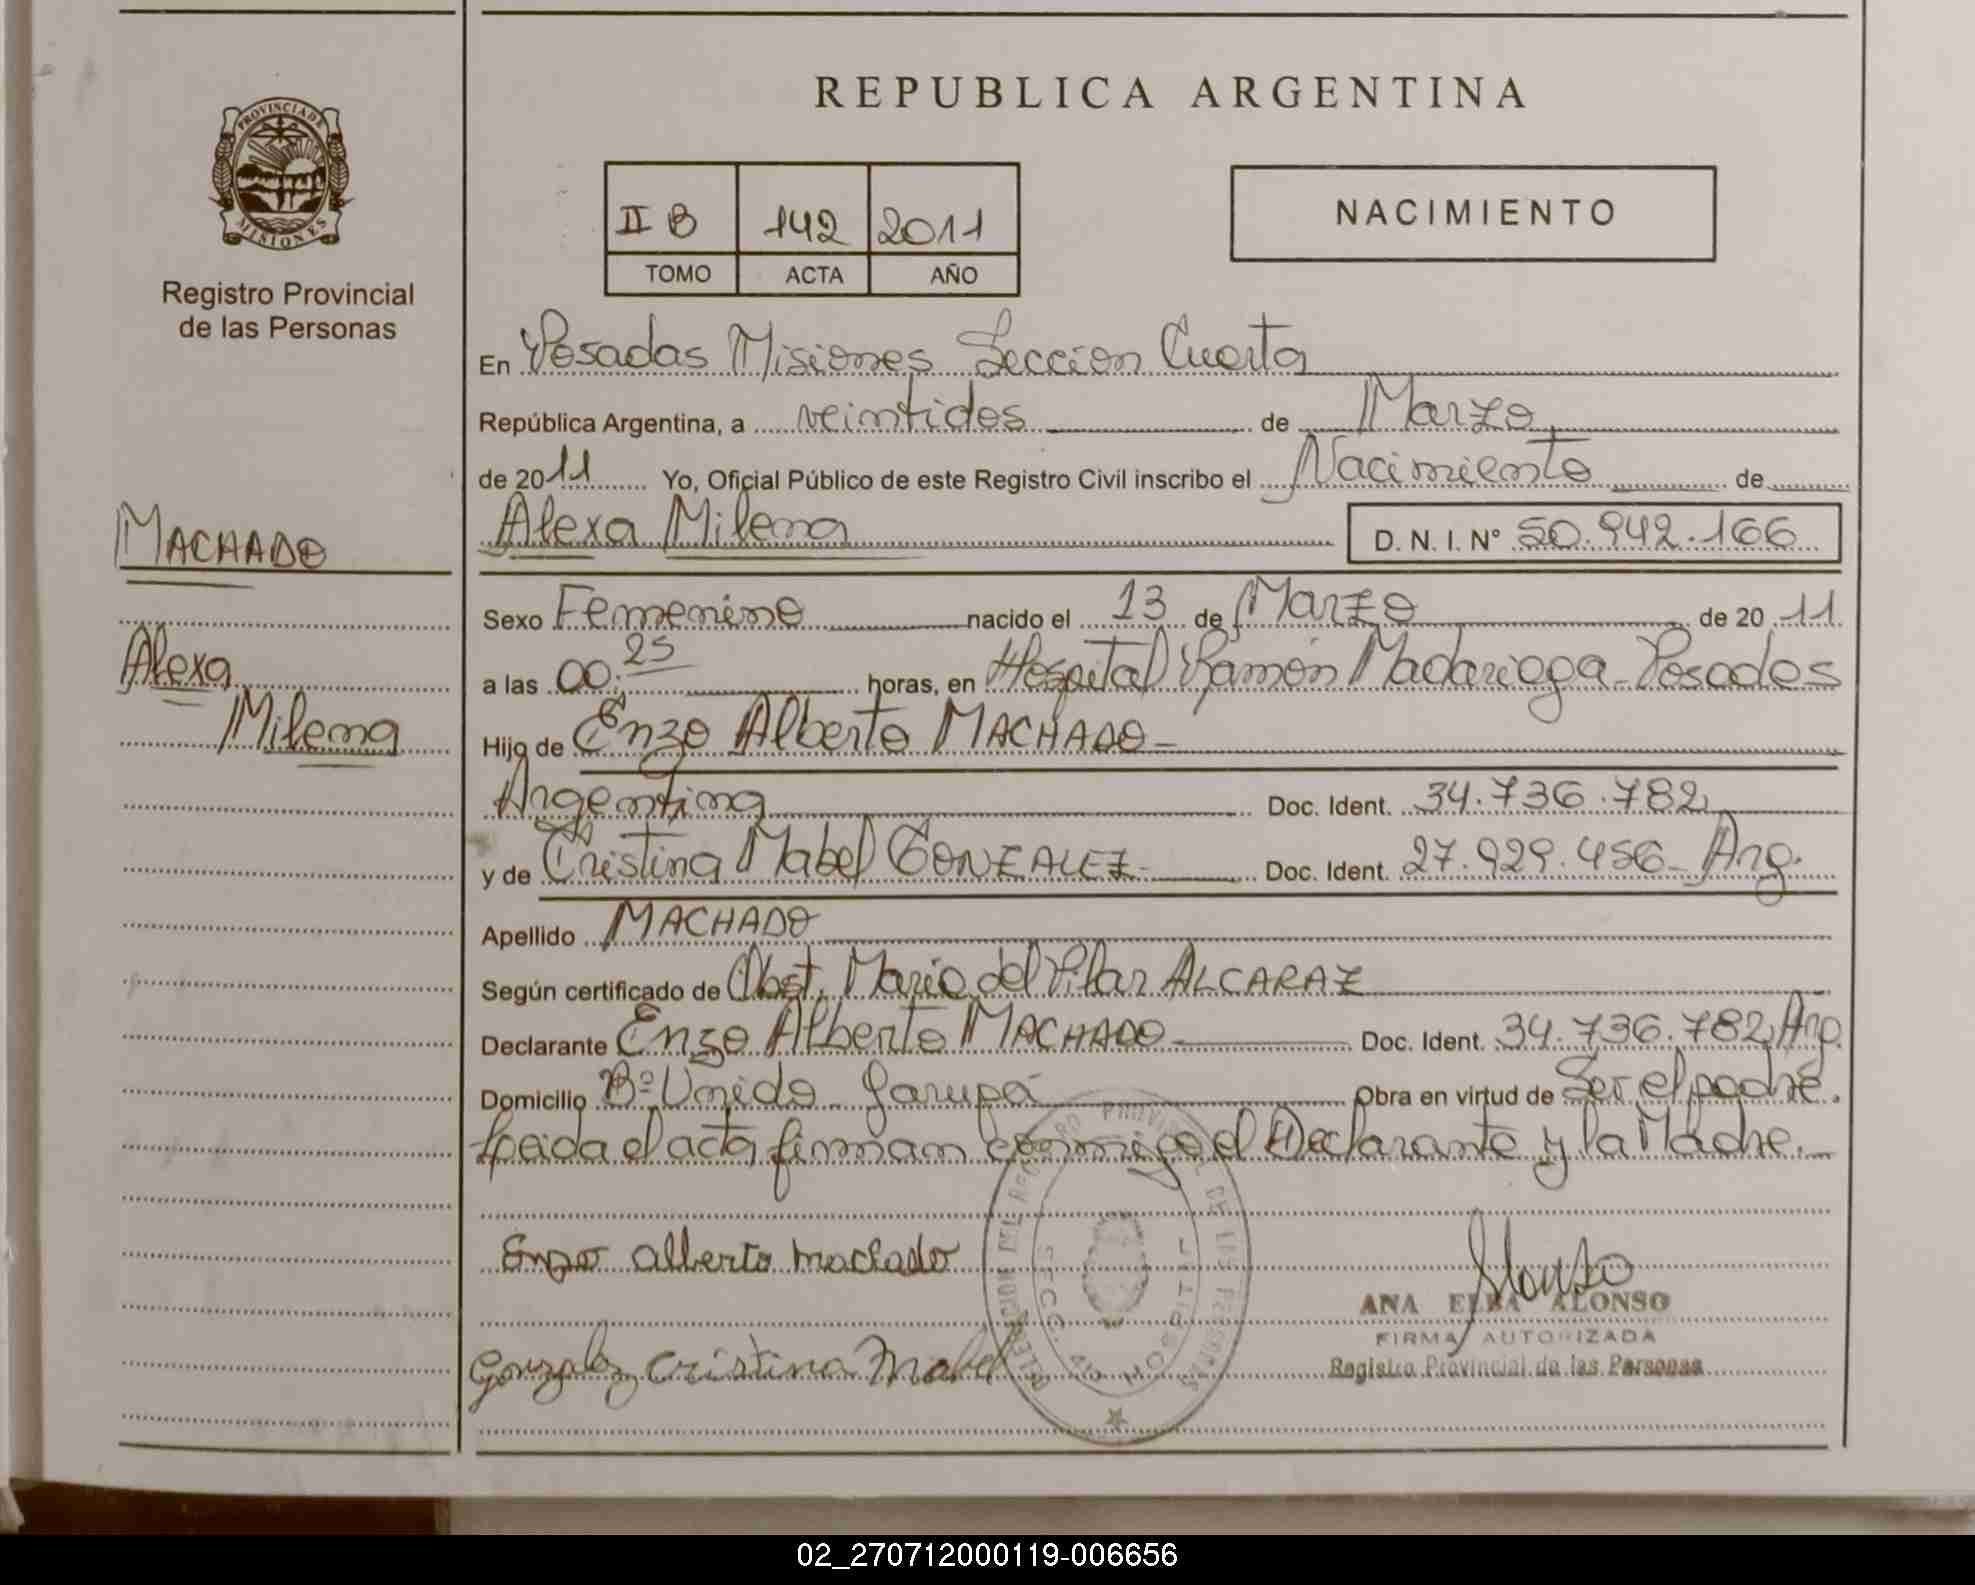 REPUBLICA ARGENTINA
PROVINCIA DE MISIONES
Registro Provincial
de las Personas
II B 142 2011
TOMO ACTA AÑO
NACIMIENTO
En Posadas Misiones Sección Cuarta
República Argentina, a veintidos de Marzo
de 2011 Yo, Oficial Público de este Registro Civil inscribo el Nacimiento de
Alexa Milena D. N. I. N° 50.942.166
MACHADO
Alexa
Milena
Sexo Femenino nacido el 13 de Marzo de 20 11
a las 00:25 horas, en Hospital Ramón Madariaga - Posadas
Hijo de Enzo Alberto MACHADO
Argentina Doc. Ident. 34.736.782
y de Cristina Mabel GONZALEZ Doc. Ident. 27.929.456 - Arg.
Apellido MACHADO
Según certificado de Obst. María del Pilar ALCARAZ
Declarante Enzo Alberto MACHADO Doc. Ident. 34.736.782 Arg.
Domicilio Bº Unido Garupá Obra en virtud de Ser el padre.
Leida el acta firman conmigo el Declarante y la Madre.
Enzo alberto machado
Gonzalez Cristina Mabel
DELEGACION DEL REGISTRO PROVINCIAL DE LAS PERSONAS
SECC. 4ta HOSPITAL
Alonso
ANA ELBA ALONSO
FIRMA AUTORIZADA
Registro Provincial de las Personas
02_270712000119-006656